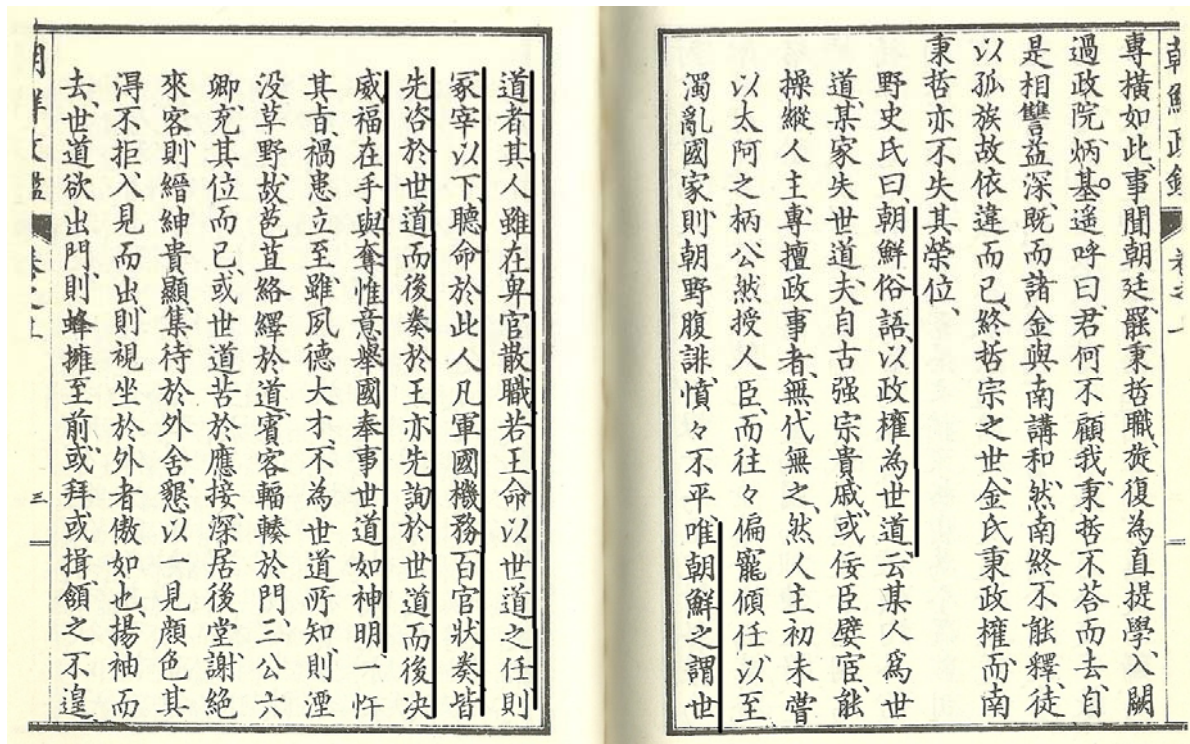 朝鮮政鑑 卷之上
專橫如此、事聞朝廷、罷秉哲職、旋復為直提學、入闕
過政院、炳基遙呼曰、君何不顧我、秉哲不荅而去、自
是相讐益深、既而諸金與南講和、然南終不能釋、徒
以孤族故依違而已、終哲宗之世、金氏秉政權、而南
秉哲亦不失其榮位、
野史氏曰、朝鮮俗語、以政權為世道、云某人爲世
道、某家失世道、夫自古强宗貴戚、或佞臣嬖宦、能
操縱人主專擅政事者、無代無之、然人主初未嘗
以太阿之柄公然授人臣、而往々偏寵傾任、以至
濁亂國家、則朝野腹誹憤々不平、唯朝鮮之謂世
道者其人雖在卑官散職若王命以世道之任則
冢宰以下、聽命於此人凡軍國機務百官狀奏皆
先咨於世道而後奏於王亦先詢於世道而後决
威福在手與奪惟意舉國奉事世道如神明、一忤
其旨、禍患立至、雖夙德大才、不為世道所知、則湮
没草野、故苞苴絡繹於道、賓客輻輳於門、三公六
卿、充其位而已、或世道苦於應接、深居後堂、謝絕
來客、則縉紳貴顯、集待於外舍、懇以一見顏色、其
淂不拒、入見而出、則視坐於外者傲如也、揚袖而
去、世道欲出門、則蜂擁至前、或拜或揖、頷之不遑、
三